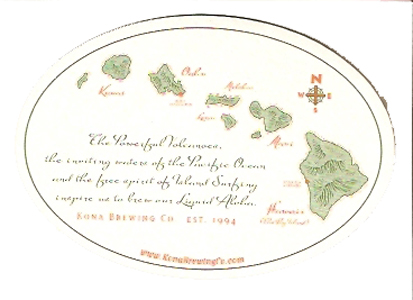 Oahu
Kauai
Molokai
Lanai
Maui
N
W E
S
Hawaii
The Powerful Volcanoes,
the inviting waters of the Pacific Ocean
and the free spirit of Island Surfing
inspire us to brew our Liquid Aloha.
KONA BREWING CO. EST. 1994
www.KonaBrewingCo.com